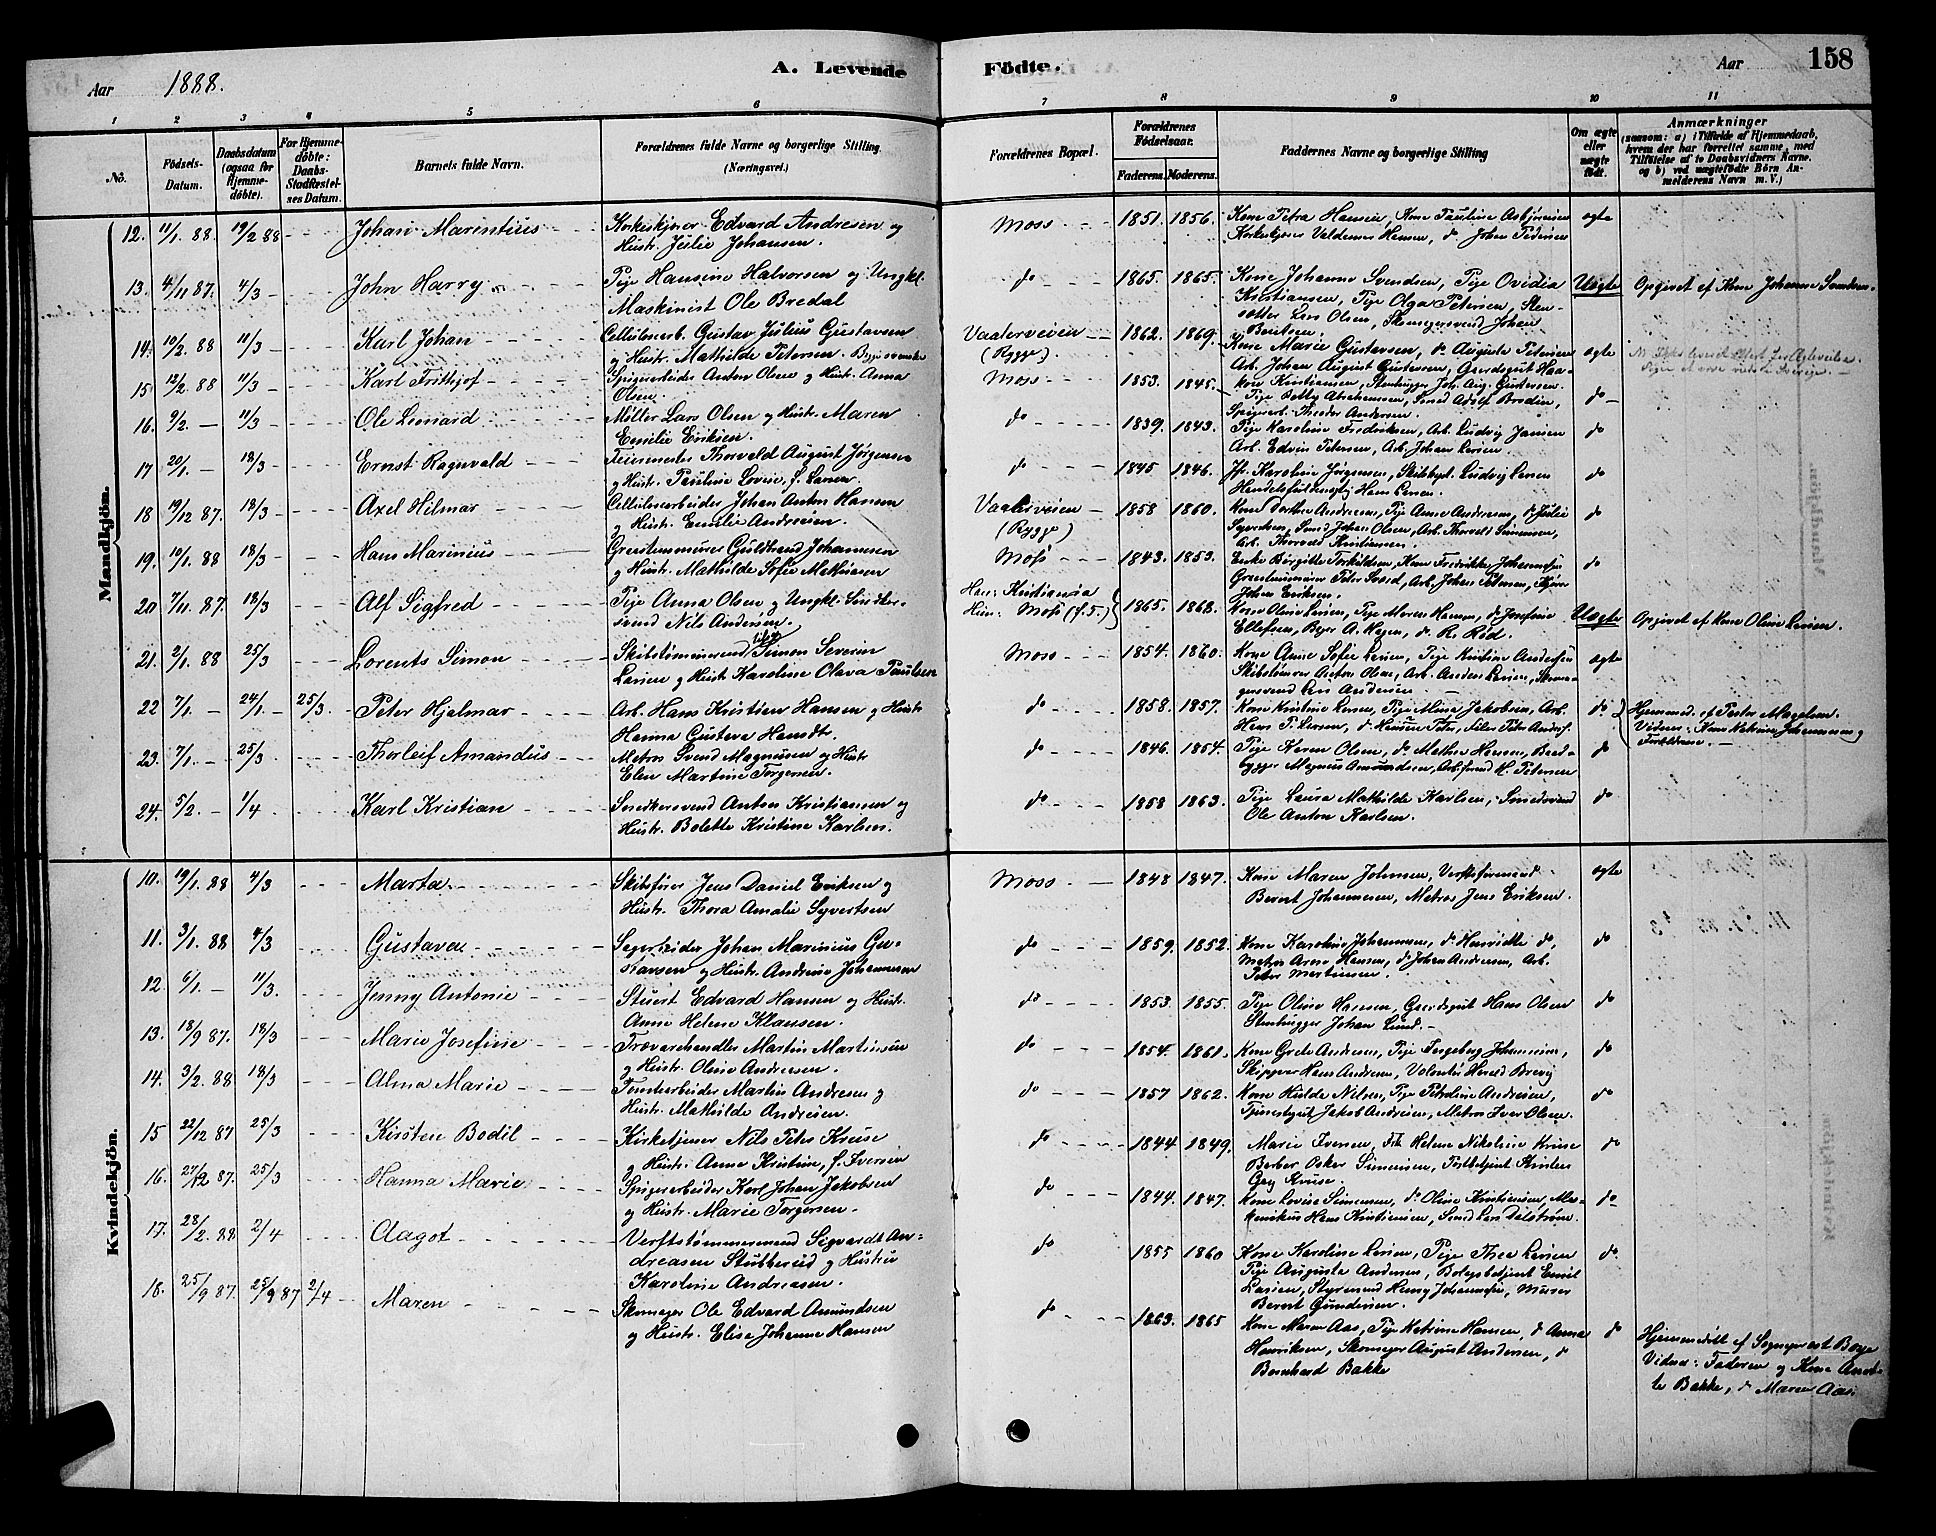 Aar 1888.
A. Levende Födte.
Aar
158
1 2 3 4 5 6 7 8 9 10 11
No.
Födsels-Datum.
Daabsdatum (ogsaa for Hjemme-döbte).
For Hjemme-döbte: Daabs-Stadfæstel-ses Datum.
Barnets fulde Navn.
Forældrenes fulde Navne og borgerlige Stilling (Næringsvei).
Forældrenes Bopæl.
Forældrenes Födselsaar.
Faderens. Moderens.
Faddernes Navne og borgerlige Stilling
Om ægte eller uægte födt.
Anmærkninger
(saasom: a) i Tilfælde af Hjemmedaab, hvem der har forrettet samme, med Tilföielse af to Daabsvidners Navne, og b) ved uægtefödte Börn An-melderens Navn m. V.)
Mandkjön.
12. 11/1. 88 19/2 88 Johan Marintius Korkeskjærer Edvard Andresen og Moss 1851. 1856. Kone Petra Hansen, Kone Pauline Asbjörnsen ægte
Hustr. Julie Johansen. Korkeskjærer Valdemar Hansen, do Johan Pedersen
13. 4/11 87. 4/3 John Harry Pige Hansine Halvorsen og Ungkl. do 1865. 1865. Kone Johanne Svendsen, Pige Ovidia Uægte Opgivet af Kone Johanne Svendsen.
Maskinist Ole Bredal Kristiansen, Pige Olga Petersen, Sten-
sætter Lars Olsen, Skomagersvend Johan
14. 10/2. 88 11/3 Karl Johan Cellulosearb. Gustav Julius Gustavsen Vaalerveien (Rygge). 1862. 1869. Kone Marie Gustavsen, do Augusta Petersen ægte
og Hustr. Mathilde Petersen. Arb. Johan August Gustavsen, Gaardsgut Haa-
15 12/2 88 11/3 Karl Frithjof Spigerarbeider Anton Olsen og Hustr. Anna Moss 1853. 1845. kon Kristiansen, Stenhugger Joh. Aug. Gustavsen. do
Olsen. Pige Betty Abrahamsen, Smed Adolf Brodin,
Spigerarb. Theodor Andersen.
16. 9/2 11/3 Ole Leonard Möller Lars Olsen og Hustr. Maren do 1839. 1843. Pige Karoline Fredriksen, Arb. Ludvig Jansen do
Emilie Eriksen. Arb. Edvin Petersen, Arb. Johan Larsen
17 20/1. 18/3 Ernst Ragnvald Feiermester Thorvald August Jörgensen do 1845 1846. Fr. Karoline Jörgensen, Skibsbyg. Ludvig Larsen do
og Hustr. Pauline Lovise, f. Larsen Handelsfuldmægtig Hans Larsen.
18 19/12 87. 18/3 Axel Hilmar Cellulosearbeider Johan Anton Hansen Vaalerveien (Rygge) 1858 1860. Kone Dorthea Andresen, Pige Anna Andresen, do Julie do
og Hustr. Emilie Andresen. Syvertsen, Smed Johan Olsen, Arb. Thorvald Simensen,
Arb. Thorvald Kristiansen.
19. 10/1. 88 18/3 Hans Marinius Graastensmurer Guldbrand Johannesen Moss 1843. 1853. Enke Birgitte Torkildsen, Kone Fredrikke Johannesen do
og Hustr. Mathilde Sofie Mathiesen Graastensmurer Peter Svard, Arb. Johan Petersen,
Johan Eriksen.
20 7/11. 87. 18/3 Alf Sigfred Pige Anna Olsen og Ungkl. Snedker- Han: Kristiania 1865. 1868. Kone Oline Larsen, Pige Maren Hansen, do Josefine Uægte Opgivet af Kone Oline Larsen.
svend Nils Andersen. Hun: Moss (f. S.) Ellefsen, A. Hagen, do R. Röd.
21. 2/1. 88 25/3 Lorents Simon Skibstömmermand Simon Severin Moss 1854. 1860. Kone Anne Sofie Larsen, Pige Kristine Andersen ægte
Larsen og Hustr. Karoline Olava Paulsen Skibstömrer Anton Olsen, Arb. Anders Larsen, Skoma-
gersvend Lars Andersen
22 7/1. 24/1. 25/3. Peter Hjalmar Arb. Hans Kristian Hansen og Hustr. do 1858. 1857. Kone Kristine Larsen, Pige Mina Jakobsen, Arb. do Hjemmed. af Pastor Magelsen.
Hanna Gustava Hansdt. Hans P. Larsen, Vidner: Kone Katrine Johannesen og
Forældrene.
23. 7/1. 25/3 Thorleif Amandus Matros Svend Magnusen og Hustr. do 1846. 1854. Pige Karen Olsen, do Mathea Hansen, Baad- do
Elen Martine Torgersen. bygger Magnus Amundsen, Arb.formd M. Petersen
24. 5/2. 1/4 Karl Kristian Snedkersvend Anton Kristiansen og do 1858 1863. Pige Laura Mathilde Karlsen, Smedsvend do
Hustr. Bolette Kristine Karlsen. Ole Anton Karlsen.
Kvindekjön.
10. 19/1. 88 4/3 Marta Skibsförer Jens Daniel Eriksen og Moss 1848 1847. Kone Maren Johnsen, Verftsformand ægte
Hustr. Thora Amalie Syvertsen Bernt Johannesen, Matros Jens Eriksen.
11. 3/1. 88 4/3 Gustava Sagarbeider Johan Marinius Gu- do 1859. 1852. Kone Karoline Johannesen, do Henriette do, do
stavsen og Hustr. Andrine Johannesen Matros Arne Hansen, do Johan Andersen, Arb.
Peter Martinsen.
12. 6/1. 11/3. Jenny Antonie Stuert Edvard Hansen og Hustr. do 1853. 1855. Pige Oline Hansen, Gaardsgut Hans Olsen do
Anne Helene Klausen. Stenhugger Johan Lund.
13. 18/9 87. 18/3 Marie Josefine Trævarehandler Martin Martinsen do 1854. 1861. Kone Grete Andresen, Pige Ingeborg Johannesen, do
og Hustr. Oline Andresen. Skipper Hans Andresen, Volontör Harald Brevig
14. 3/2. 88 18/3 Alma Marie Tomtearbeider Martin Andresen og do 1857 1862. Kone Hulda Nilsen, Pige Petoline Andresen, do
Hustr. Mathilde Andresen. Tjenestegut Jakob Andresen, Matros Iver Olsen.
15 22/12 87 25/3 Kirsten Bodil Kirketjener Nils Peter Kruse do 1844 1849. Marie Iversen, Frk Helene Nikoline Kruse do
og Hustr. Anna Kristine, f. Iversen Barber Oskar Simensen, Postbetjent
Kruse
16. 27/12 87. 25/3 Hanna Marie Spigerarbeider Karl Johan Jakobsen do 1844. 1847. Kone Lovise Simensen, do Oline Kristiansen, Me- do
og Hustr. Marie Torgersen. kanikus Hans Kristiansen, Smed Lars Dalström.
17. 28/2. 88 2/4 Aagot Verftstömmermand Sigvardt An- do 1855 1860 Kone Karoline Larsen, Pige Thea Larsen do.
dreasen Stubberud og Hustru Pige Augusta Andersen, Bolagsbetjent Emil
Karoline Andreasen. Larsen, Styrmand Henry Johannesen, Murer
Bernt Gundersen.
18. 25/9 87. 25/9 87 2/4 Maren Skomager Ole Edvard Amundsen do 1863. 1865 Kone Maren Aas, Pige Katrine Hansen, do Anna do Hjemmedöbt af Sogneprest Borge
og Hustr. Elise Johanne Hansen Henriksen, Skomager August Andersen, do Vidner: Faderen og Kone Anet-
Bernhard Bakke te Bakke, do Maren Aas.